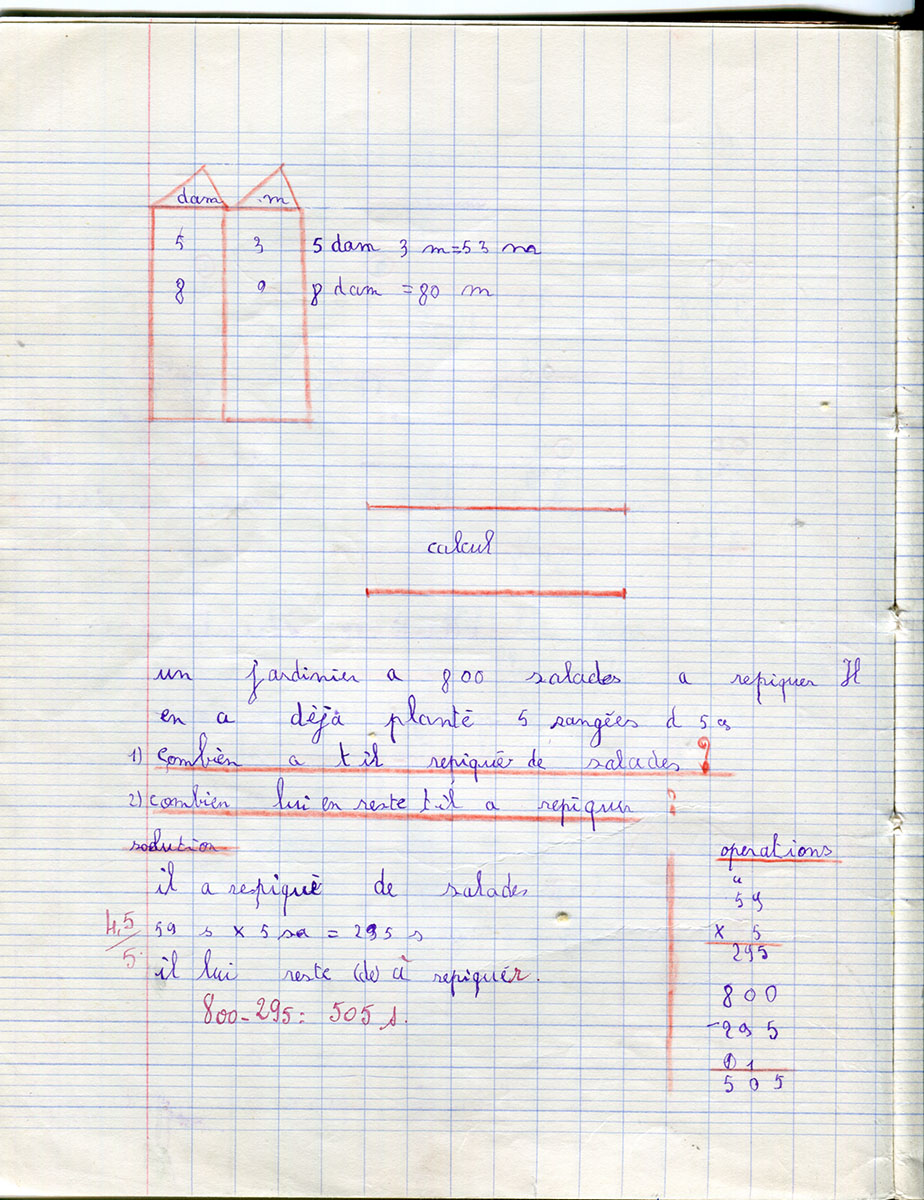 dam m
5 3 5 dam 3 m = 53 m
8 0 8 dam = 80 m
calcul
un jardinier a 800 salades a repiquer Il
en a déjà planté 5 rangées d 59
1) combien a t il repiqué de salades ?
2) combien lui en reste t.il a repiquer ?
solution
operations
il a repiqué de salades
4,5/5
59 s x 5 = 295 s
il lui reste (de) à repiquér.
800 - 295 = 505 s.
59
x 5
295
800
- 295
505